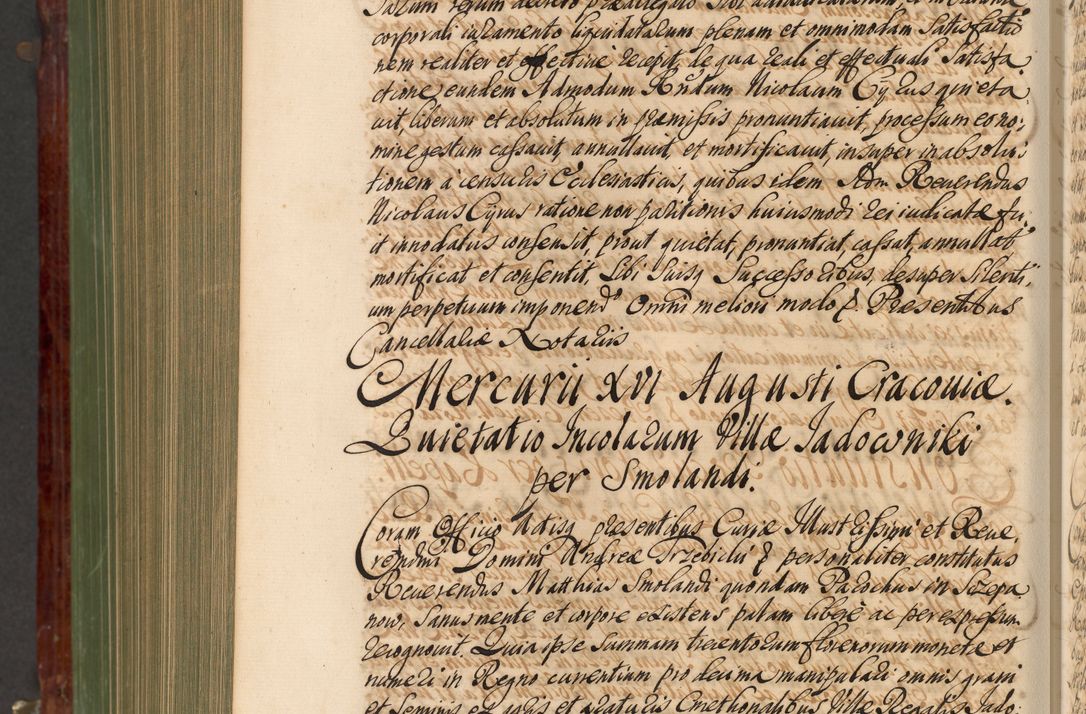 corporali iuramento liquidatarum plenam et omnimodam satisfactio
nem realiter et effective recepit, de qua reali et effectuali satisfa
ctione eundem Admodum Rndum Nicolaum Cyrus quieta
uit, liberum et absolutum in præmissis pronuntiauit, processum eo no:
mine gestum cassauit, annullauit, et mortificauit, insuper in absolu:
tionem à censuris Ecclesiasticis, quibus idem Adm Reuerendus
Nicolaus Cyrus ratione non paritionis huiusmodi rei iudicatæ fu:
it innodatus consensit, prout quietat, pronuntiat, cassat, annullat
mortificat et consentit, sibi suisq Successoribus, desuper silenti,
um perpetuum imponend Omni meliori modo Præsentibus
Cancellariæ Notariis
Mercurii XVI Augusti Cracouiæ.
Quietatio Incolarum Villæ Jadowniki
per Smolandi.
Coram Officio Actisq præsentibus Curiæ Illustrissimi et Reue,
rendmi Domini Andreæ Trzebicki personaliter constitutus
Reuerendus Matthias Smolandi quondam Parochus in Szczepa
now, sanus mente et corpore existens palam liberè ac per expressum
recognouit. Quia ipse summam trecentorum florenorum monetæ et
numeri in Regno currentium pro decima manipulari omnis grani
et seminis ex agris et araturis Cmethonalibus Villæ Regalis Jado: